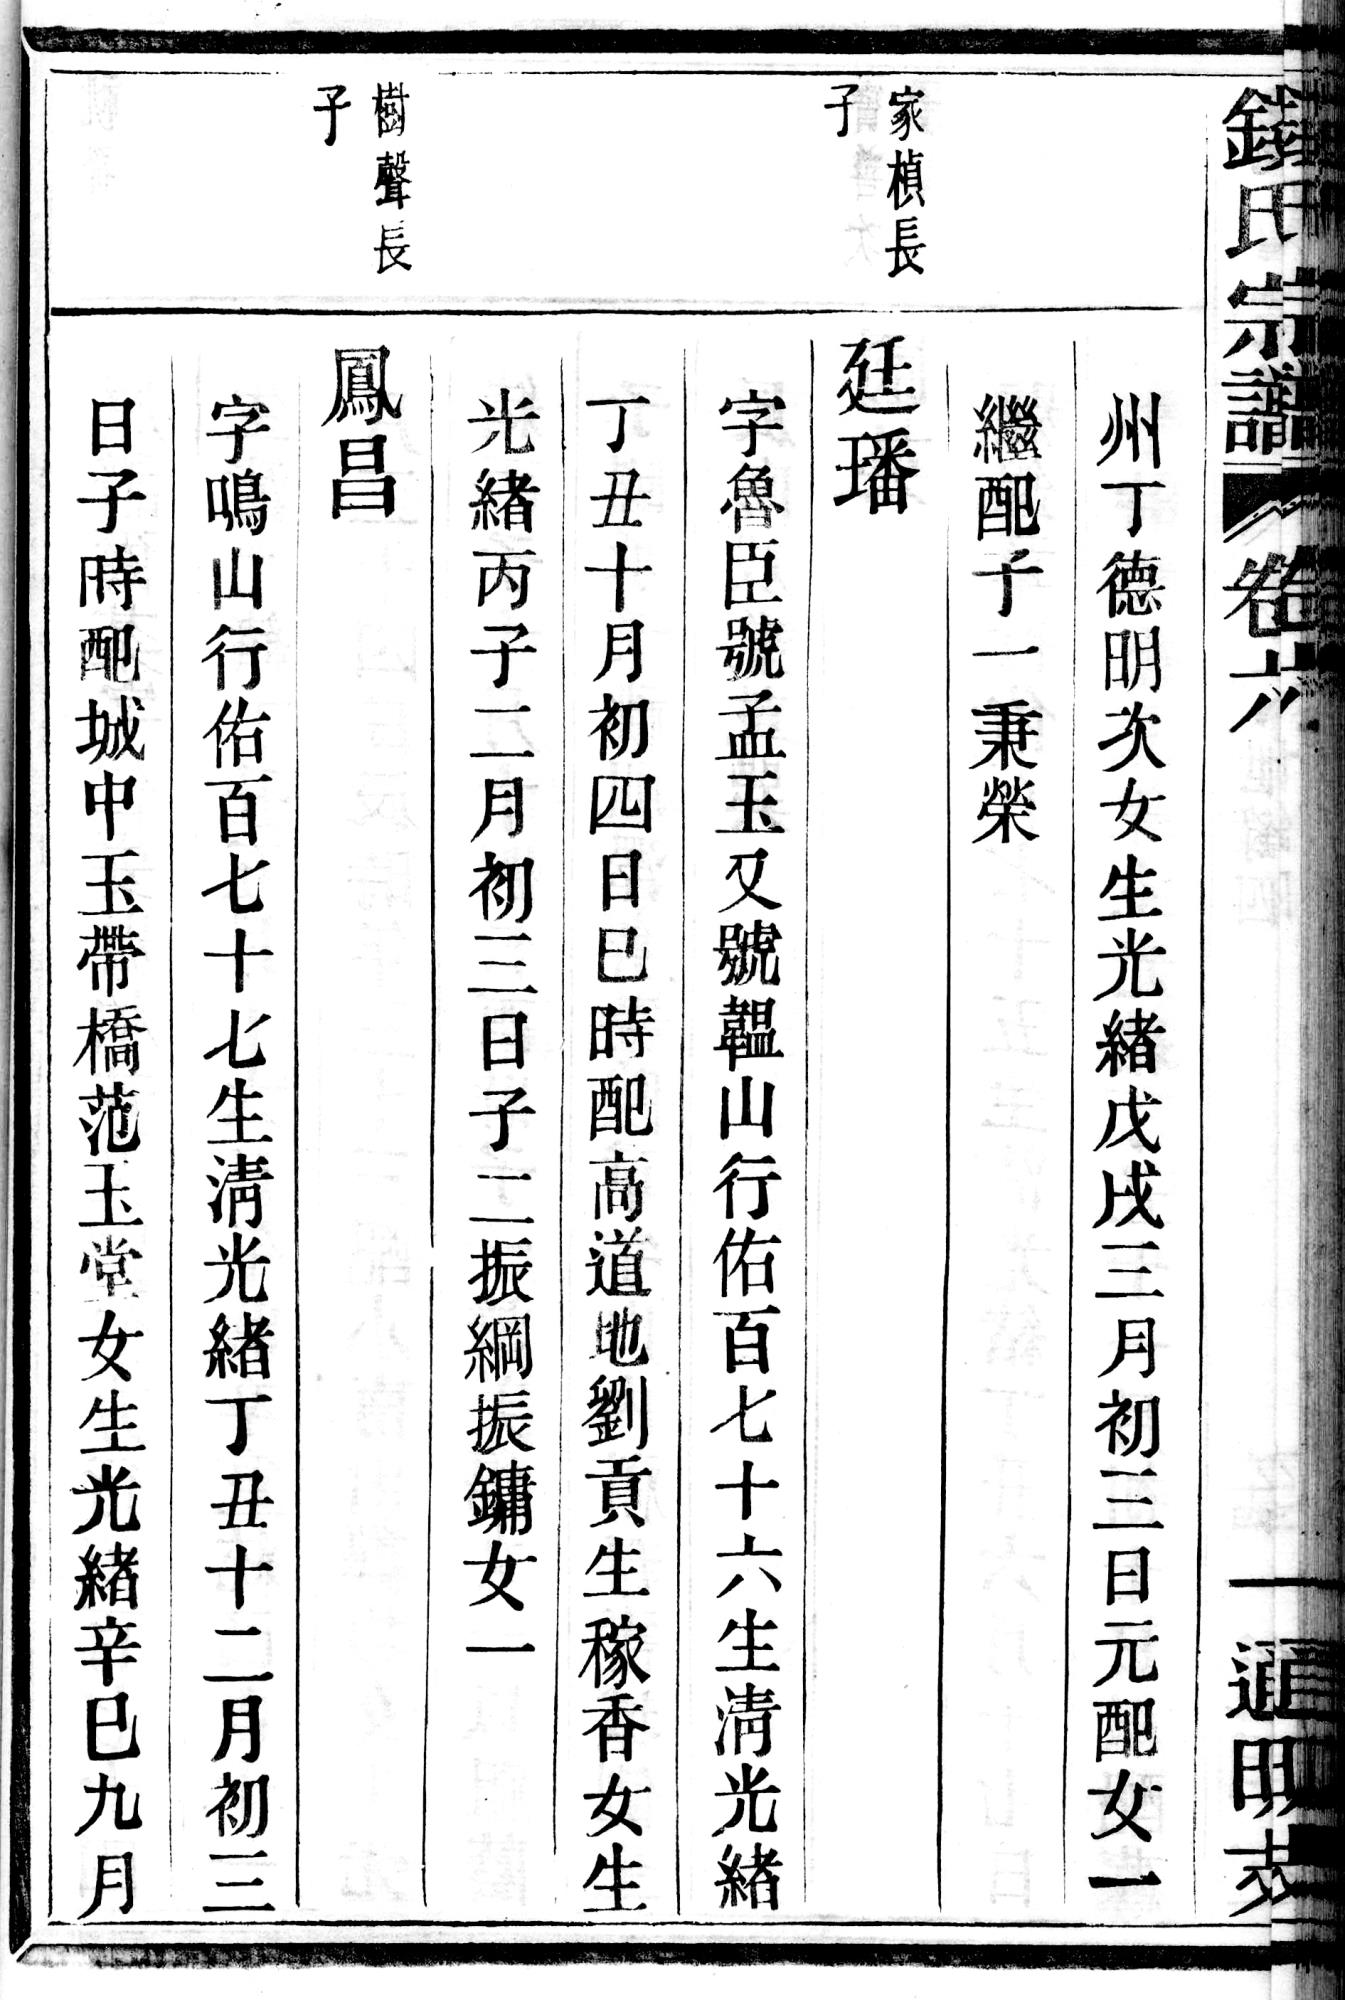 氏宗譜
卷六
州丁德明次女生光緒戊戌三月初三日元配女一
繼配子一秉榮
家楨長
子
廷璠
字魯臣號孟玉又號韞山行佑百七十六生淸光緒
丁丑十月初四日巳時配高道地劉貢生稼香女生
光緒丙子二月初三日子二振綱振鏞女一
樹聲長
子
鳳昌
字鳴山行佑百七十七生淸光緒丁丑十二月初三
日子時配城中玉帶橋范玉堂女生光緒辛巳九月